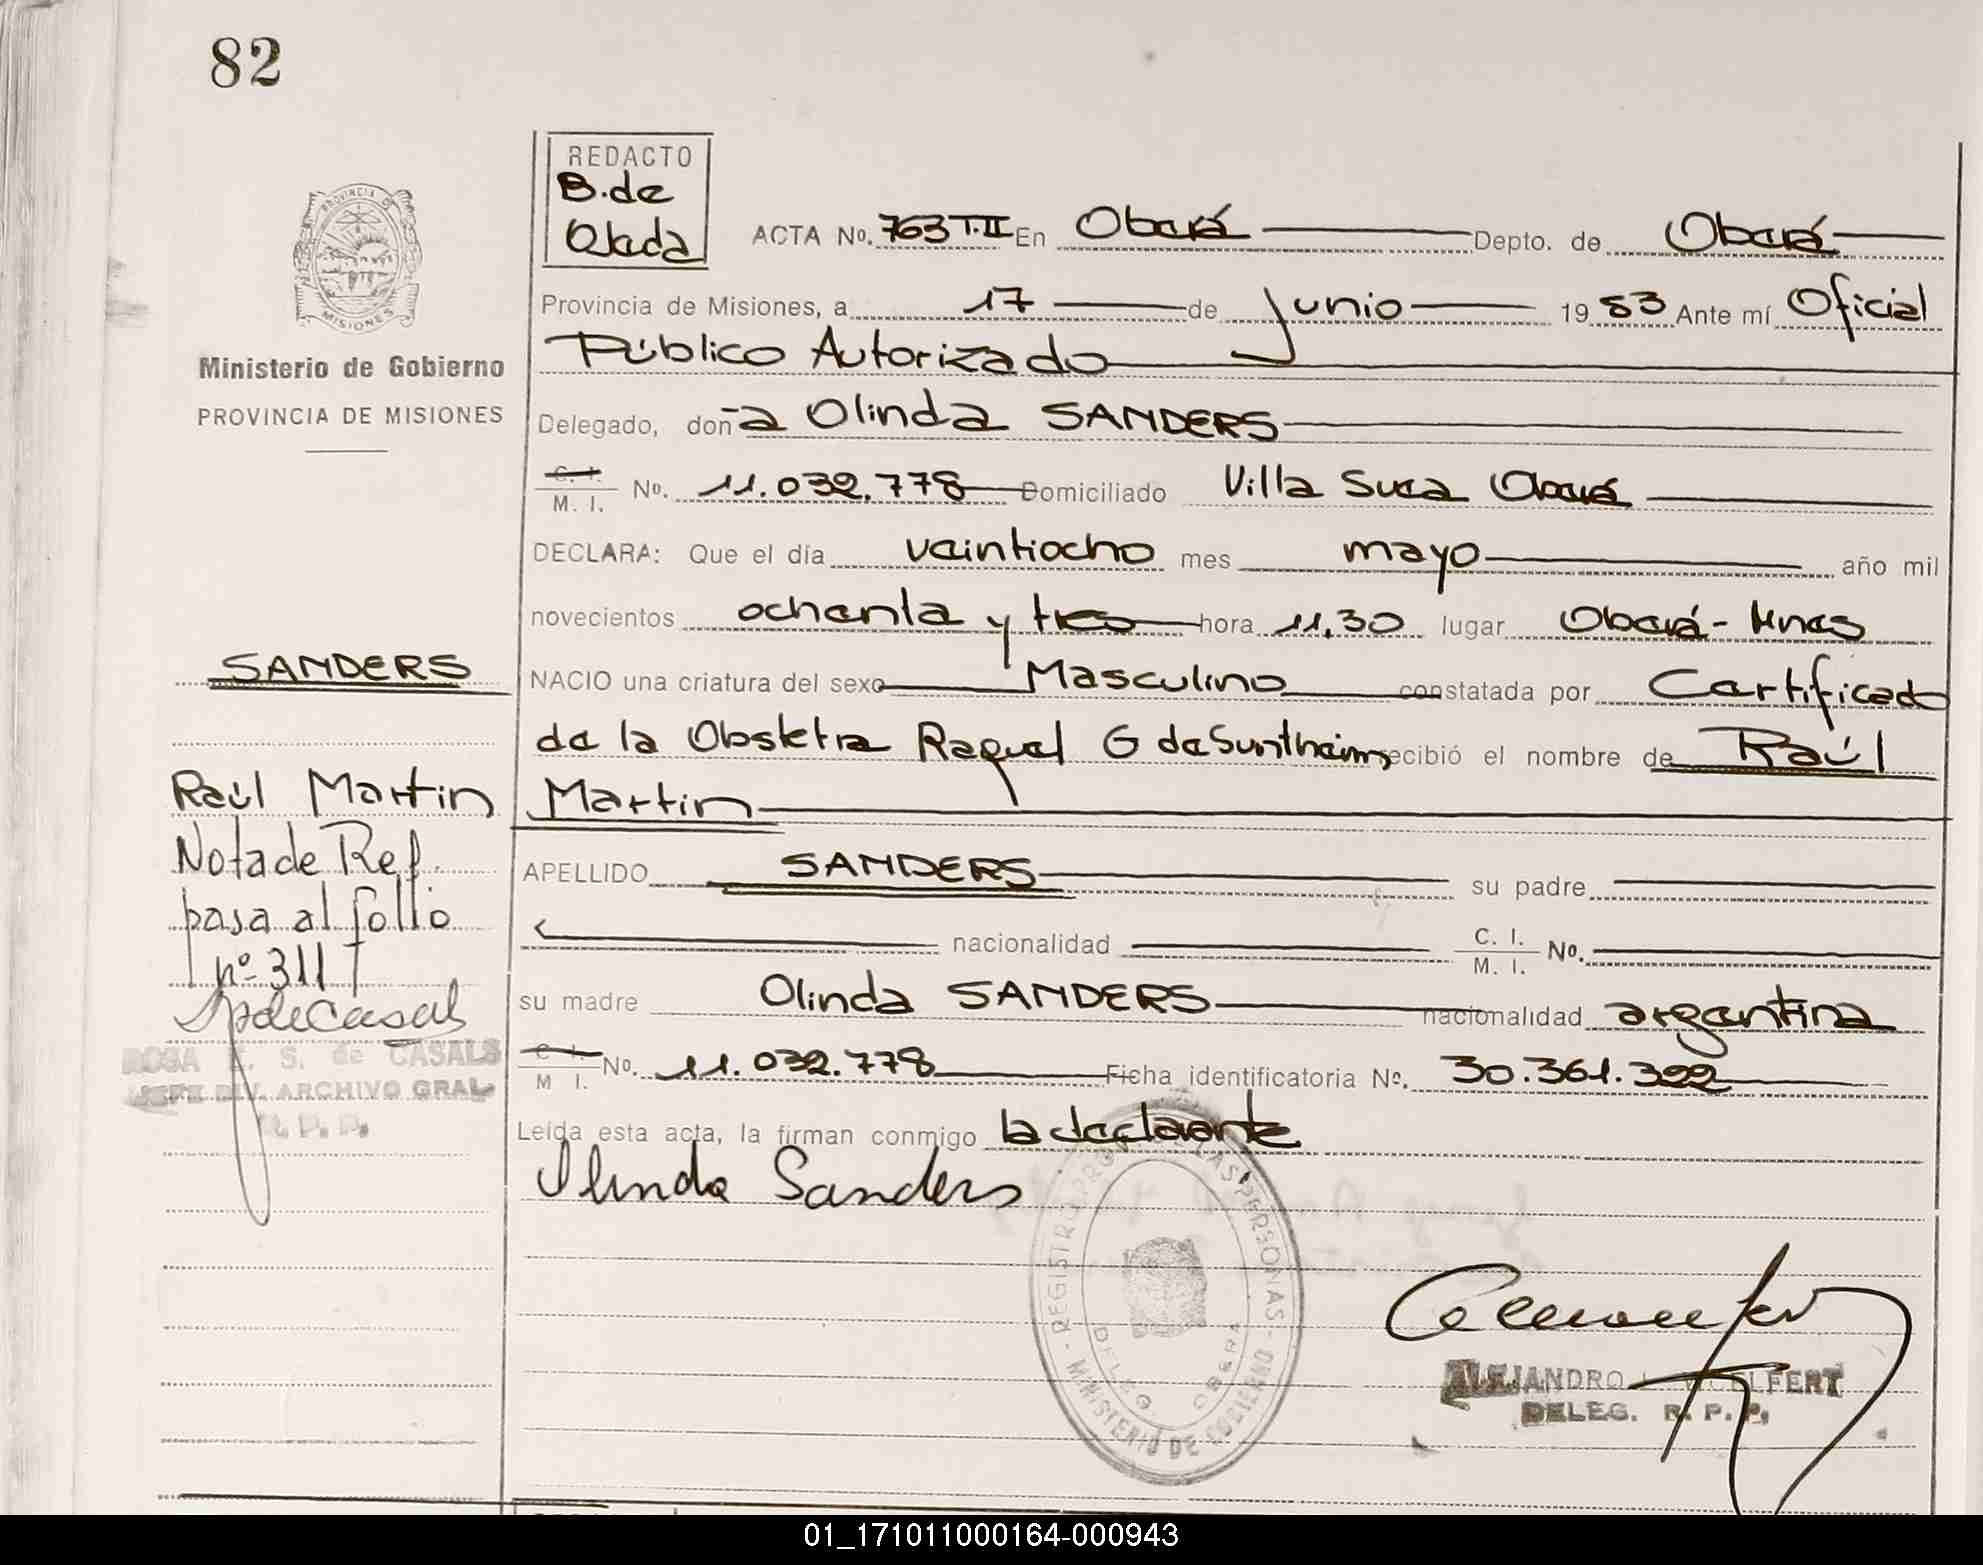 82
REDACTO
B. de
Ojeda
ACTA No. 763 T.II En Oberá Depto. de Oberá
Provincia de Misiones, a 17 de Junio 19 83 Ante mí Oficial
Público Autorizado
Delegado, doña Olinda SANDERS
C. I.
M. I. No. 11.032.778 Domiciliado Villa Suca Oberá
DECLARA: Que el día veintiocho mes mayo año mil
novecientos ochenta y tres hora 11,30 lugar Oberá - Mnes
NACIO una criatura del sexo Masculino constatada por Certificado
de la Obstetra Raquel G de Suntheim recibió el nombre de Raúl
Martin
APELLIDO SANDERS su padre
nacionalidad C. I. M. I. No.
su madre Olinda SANDERS nacionalidad argentina
C. I.
M I. No. 11.032.778 Ficha identificatoria No. 30.361.322
Leída esta acta, la firman conmigo la declarante
Olinda Sanders
PROVINCIA D
MISIONES
Ministerio de Gobierno
PROVINCIA DE MISIONES
SANDERS
Raúl Martin
Nota de Ref.
pasa al folio
nº 311 T
de Casals
ROSA E. S. de CASALS
JEFE DIV. ARCHIVO GRAL
R. P. P.
REGISTRO PROV. DE LAS PERSONAS - MINISTERIO DE GOBIERNO -
DELEG. OBERA
ALEJANDRO WOLFERT
DELEG. R. P. P.
01_171011000164-000943